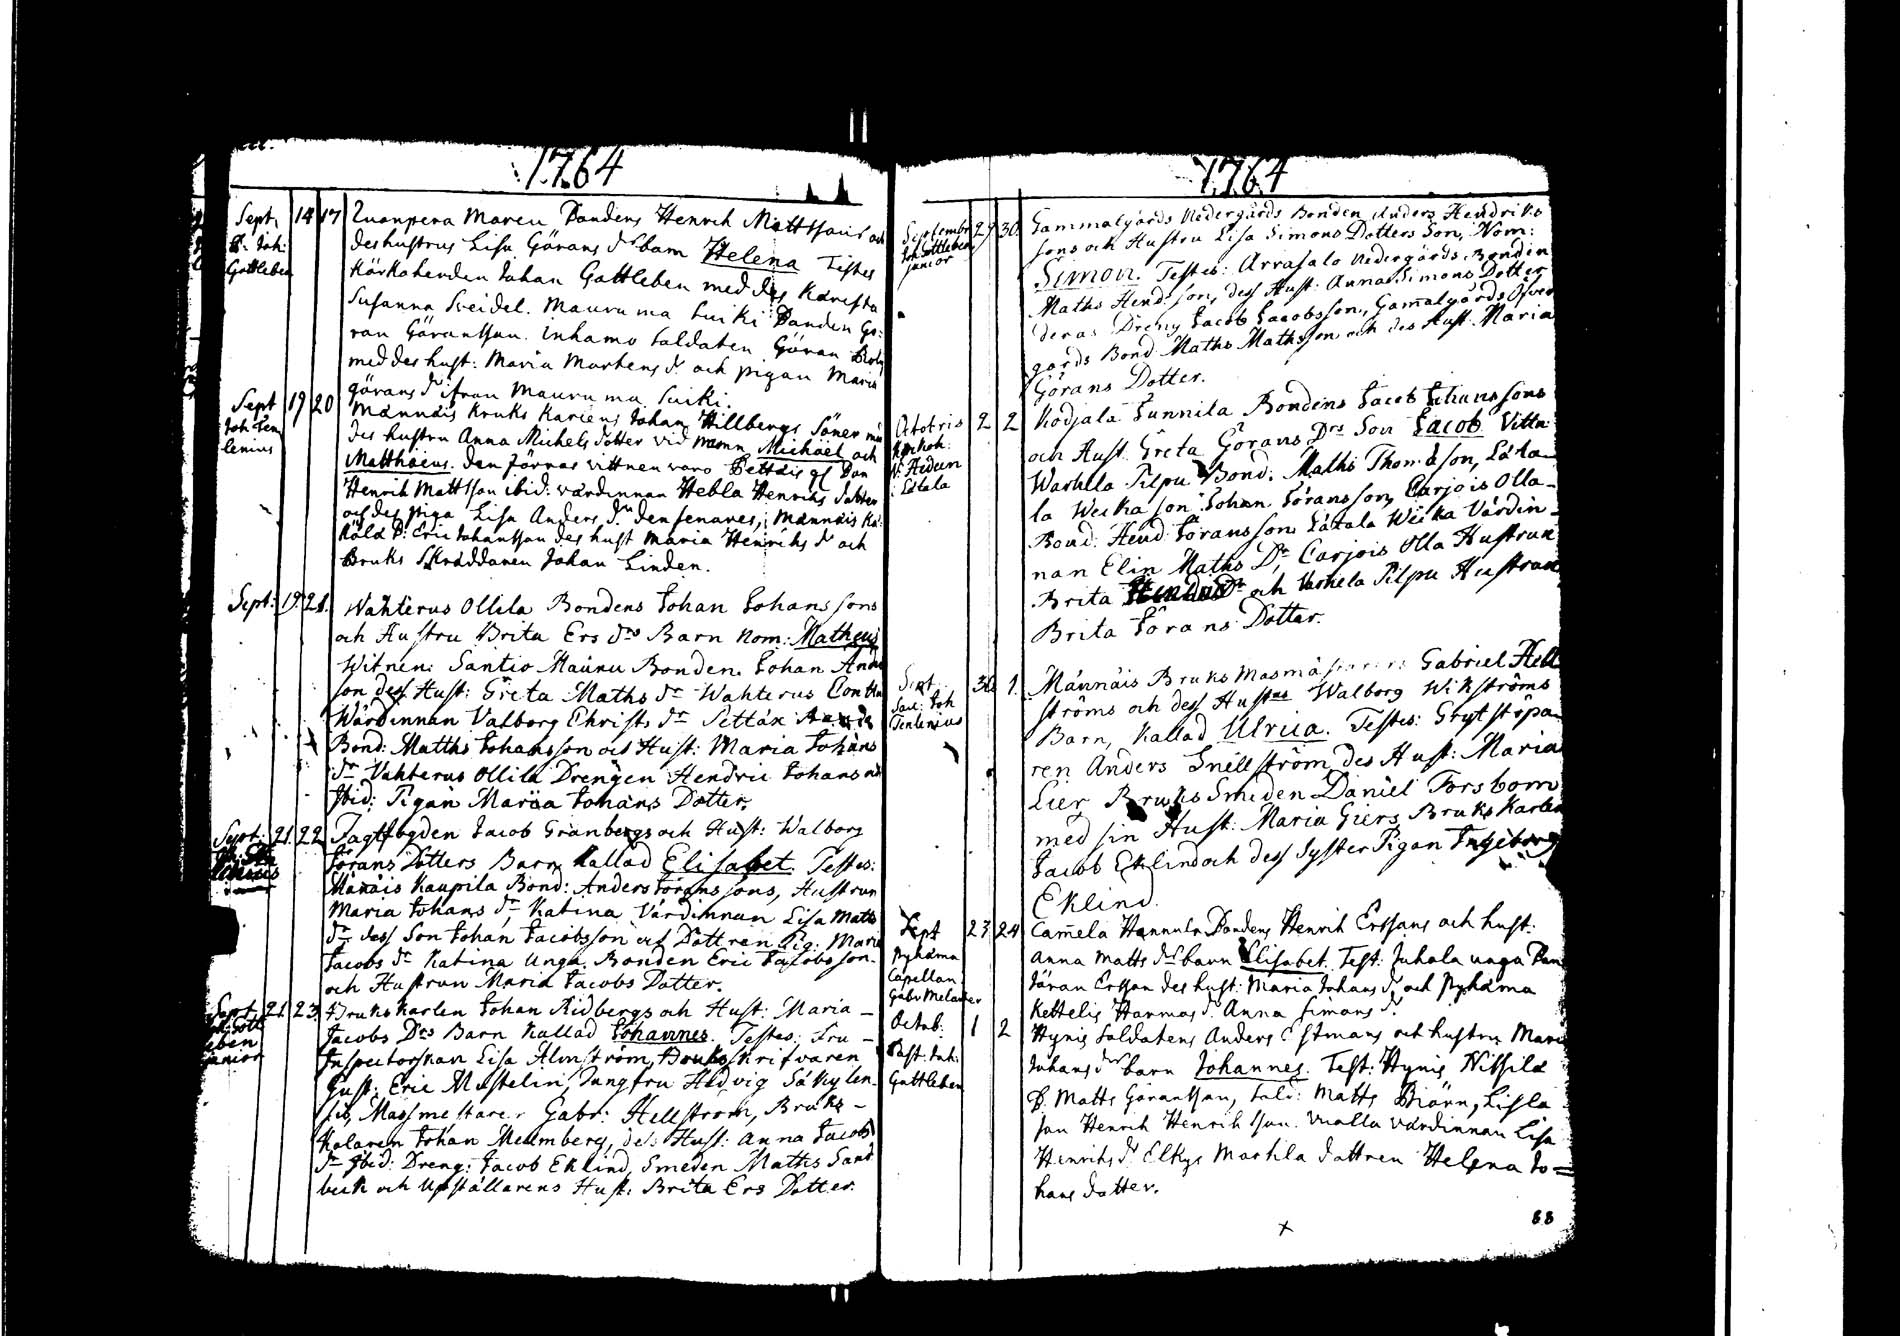 1764
Sept. 14 17 Zuanpera Mareu Bondens Henrch Mattssons och
P. Joh: deshustrus Lisa Görans dr barn Helena Testes
Gottleben Körkoherden Johan Gottleben med des Käresta
Susanna Sveidel. Mauruma Suiki Bonden Gö:
ran Göransson. Inhamo Soldaten Göran
med des hust: Maria Markens dr och pigan Maria
görans dr ifrån Mauruma Suiki.
Sept 19 20 Männäis Bruks Johan Hillbergs Söner
Joh Ten
lenius des hustru Anna Michels dotter vid namn Michäel och
Matthäeus. den förras vittnen voro
Henrik Mattsson ibid: värdinnan Hebla Henrichs dotter
och des piga Lisa Anders dr. den senares, Männäis
Eric Johansson des hust Maria Henrichs dr och
Bruks Skräddaren Johan Linden.
Sept: 19. 21. Wahterus Ollila Bondens Johan Johans sons
och Hustru Brita Ers drs Barn Nom: Matheus
Witnen: Santio Maunu Bonden. Johan Anders
son des Hust: Greta Maths dr Wahterus Conttu
Wärdinnan Valborg Christs dr Settäx
Bond: Matths Johansson och Hust: Maria Johans
dr Vahterus Ollila Drengen Hendric Johans
Ibid: Pigan Maria Johans Dotter.
Sept: 21. 22 Jagtfogden Jacob Granbergs och Hust: Walborg
Jörans Dotters Barn kallad Elisabet. Testes:
Manäis Kaupila Bond: Anders Jöranssons, Hustrun
Maria Johans dr, Katina Värdinnan Lisa Matts
dr dess Son Johan Jacobsson och Dottren Pig: Maria
Jacobs dr Katina Unga Bonden Eric Jacobsson
och Hustrun Maria Jacobs Dotter.
Sept. 21. 23. Brukskarlen Johan Ridbergs och Hust: Maria –
Joh: Gott
leben
junior Jacobs Drs Barn kallad Johannes. Testes: Fru –
Inspectorskan Lisa Almström, Bruksskrifvaren
Gust: Eric Mustelin, Jungfru Hedvig Säkylen-
sis, Masmestaren Gabr: Hellström, Bruks –
Kolaren Johan Malmberg, des Hust: Anna Jacobs
dr Ibid: Dreng: Jacob Eklind, Smeden Maths Sand
beck och Upställarens Hust: Brita Ers Dotter.
1764
Septembr 29 30. Gammalgårds Nedergårds Bonden Anders Hendrics
Joh Gottleben
junior sons och Hustru Lisa Simons Dotters Son, Nom:
Simon. Testes: Arrasalo Nedergårds Bonden
Maths Hend: son, des Hust. Anna Simons Dotter
deras Dreng Jacob Jacobsson, Gamalgårds Öfver
gårds Bond Maths Mathsson och des Hust. Maria
Görans Dotter.
Octobris 2 2 Kodjala Junnila Bondens Jacob Johanssons
Kyrkoh:
N: Hedeen
i Letala och Hust. Greta Görans Drs Son Jacob. Vittn:
Warhela Pilpu Bond: Maths Thomasson, Läta-
la Weika son Johan Jöransson, Carjois Olla-
Bond: Hend Joransson Lätala Weika Värdin-
nan Elin Maths Dr Carjois Olla Hustrun
Brita och Varhela Pilpu Hustrun
Brita Jörans Dotter.
Sept. 30 1. Männäis Bruks Masmästarens Gabriel Hell
Joh
Tenlenius ströms och des Hustrus Walborg Wikströms
Barn, kallad Ulrica. Testes: Grytstöpa-
ren Anders Snellström des Hust: Maria
Lier, Bruks Smeden Daniel Forsbom
med sin Hust: Maria Giers, Bruks Karlen
Jacob Eklind och dess Syster Pigan Ingeborg
Eklind.
Sept 23 24 Camela Hannula Bondens Henrik Erssons och hust:
Pyhäma
Capellan
Gabr Melander Anna Matts drs barn Elisabet. Test: Juhola unga Bon
Jöran Ersson des hust: Maria Johans dr och Pyhäma
Kettelis Hannas d. Anna Simons dr
Octob: 1 2 Hynis Soldatens Anders Estmans och hustru Maria
Past. Joh:
Gottleben Johans drs barn Johannes. Test: Hynis Nissilä
B. Matts Göransson, Sold: Matts Biörn, Lisla
son Henrik Henriksson. Vualla värdinnan Lisa
Henriks dr Elkys Markla dottren Helena Jo=
hans dotter.
88